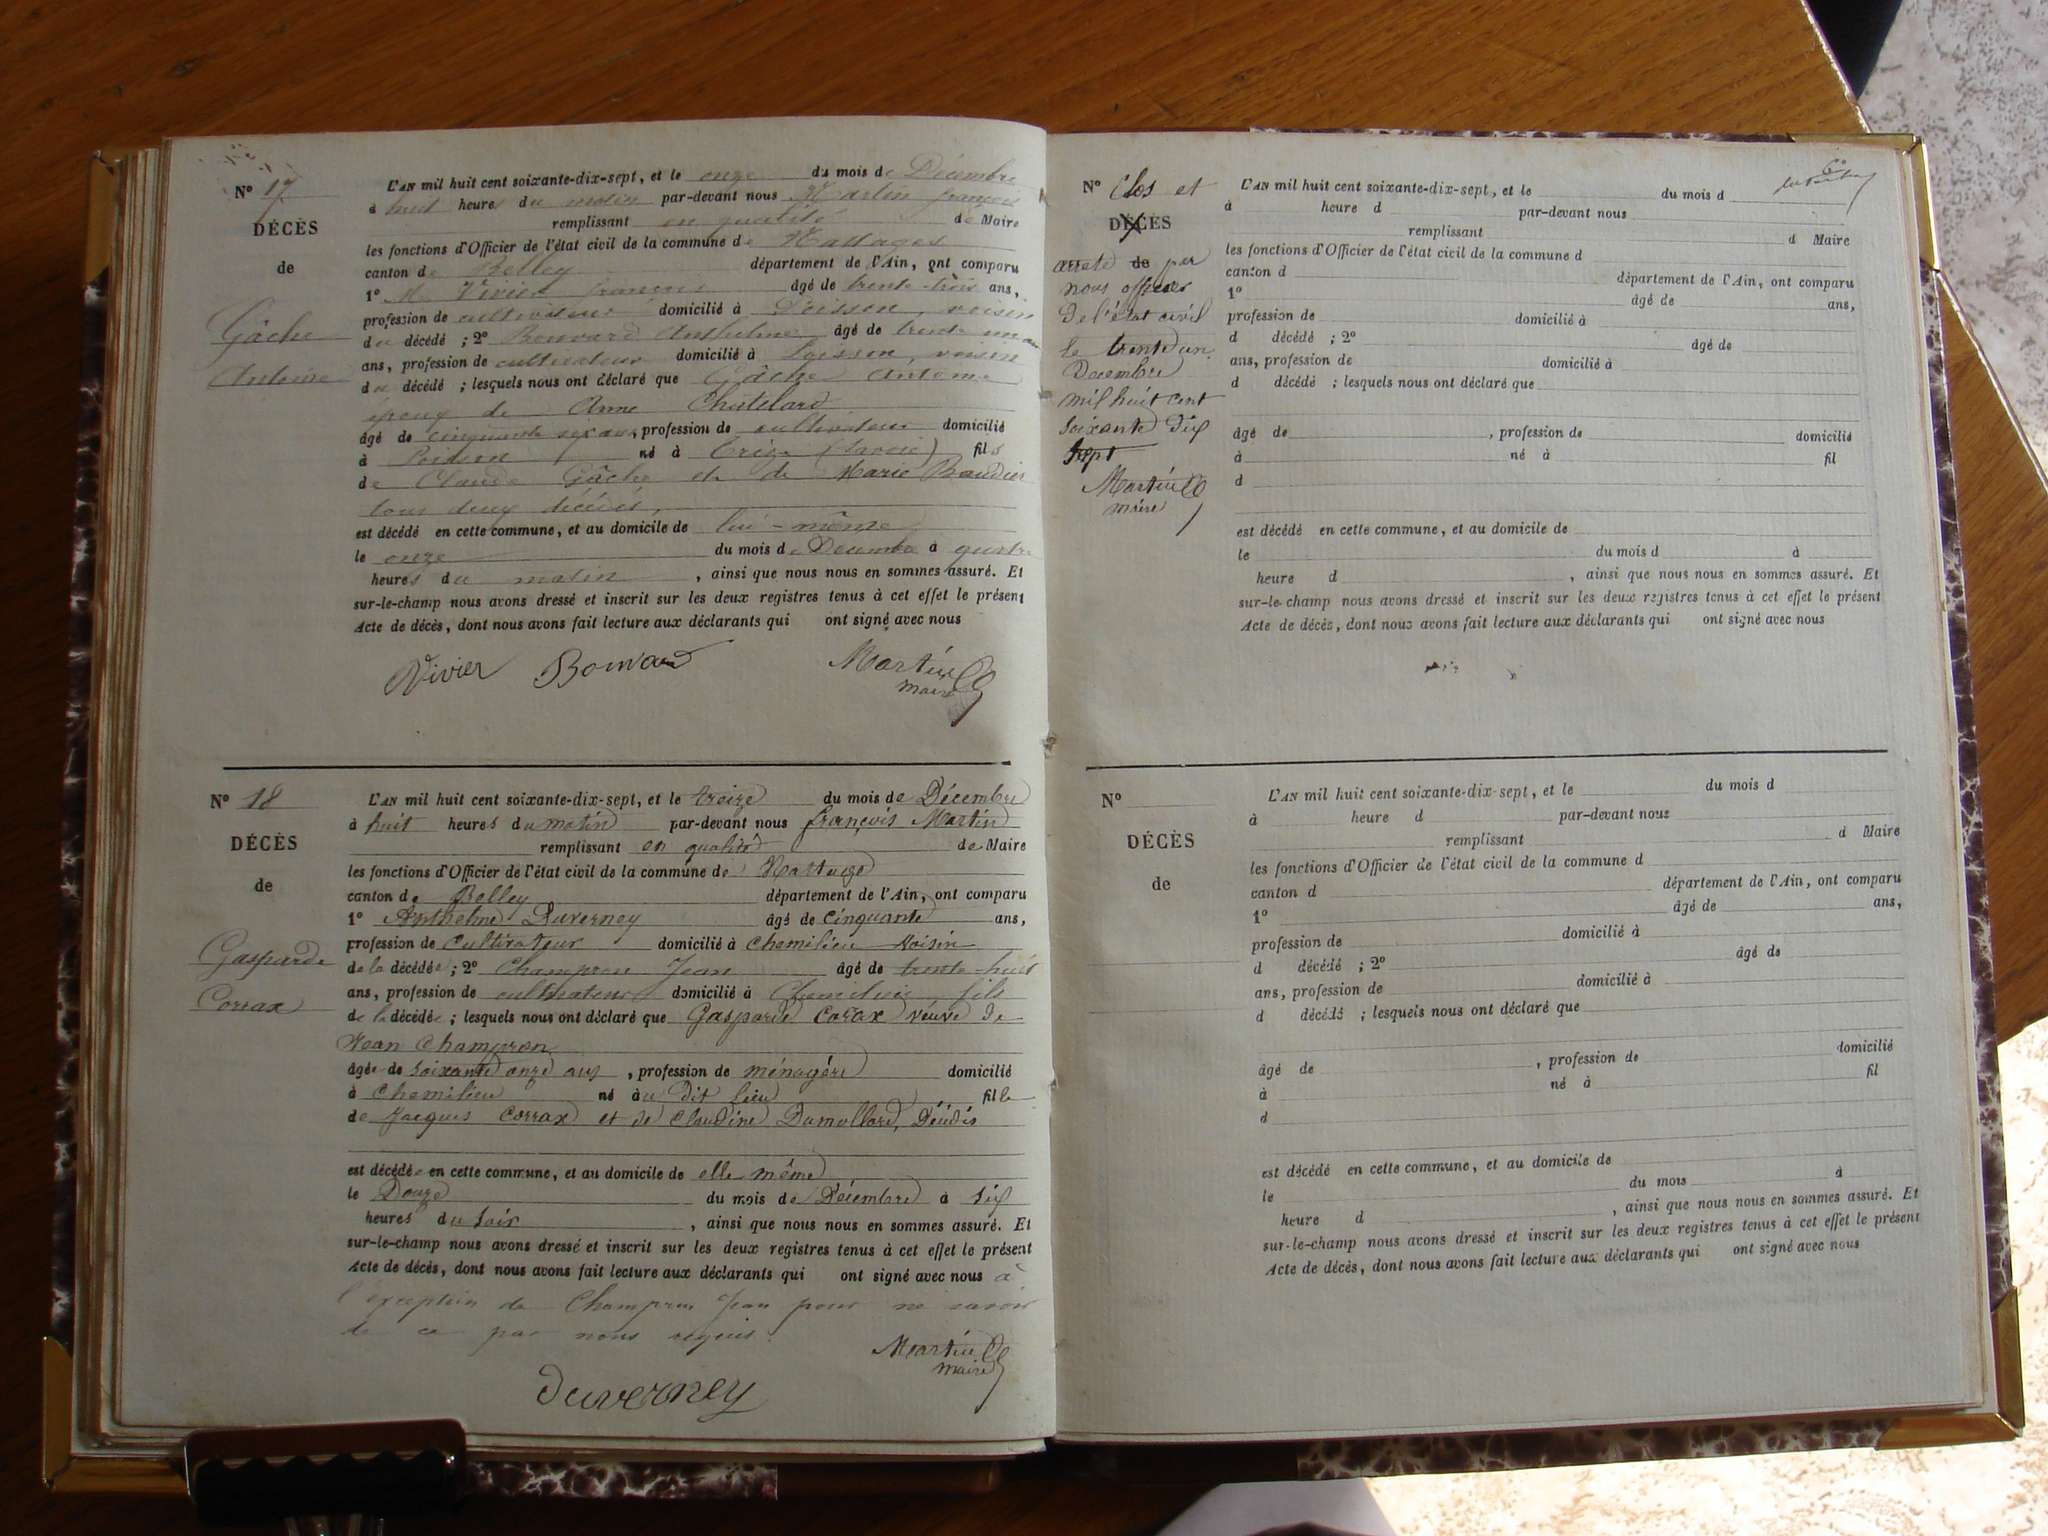 N° 17
DÉCÈS
de
Gâche
Antoine
L'AN mil huit cent soixante-dix-sept, et le onze du mois de Décembre
à huit heures du matin par-devant nous Martin françois
remplissant en qualité de Maire
les fonctions d'Officier de l'état civil de la commune de Nattages
canton de Belley département de l'Ain, ont comparu
1° M. Vivier françois âgé de trente-trois ans,
profession de cultivateur domicilié à Poisson, voisin
du décédé ; 2° Bouvard Anthelme âgé de trente un
ans, profession de cultivateur domicilié à voisin
du décédé ; lesquels nous ont déclaré que Gâche Antoine
époux de Anne Chatelard
âgé de cinquante ans, profession de cultivateur domicilié
à né à (Savoie) fils
de Claude Gâche et de Marie
tous deux décédés,
est décédé en cette commune, et au domicile de lui-même
le onze du mois de Décembre à quatre
heures du matin, ainsi que nous nous en sommes assuré. Et
sur-le-champ nous avons dressé et inscrit sur les deux registres tenus à cet effet le présent
Acte de décès, dont nous avons fait lecture aux déclarants qui ont signé avec nous
Vivier Bouvard Martin
maire
N° 18
DÉCÈS
de
Gasparde
Corrax
L'AN mil huit cent soixante-dix-sept, et le treize du mois de Décembre
à huit heures du matin par-devant nous françois Martin
remplissant en qualité de Maire
les fonctions d'Officier de l'état civil de la commune de Nattage
canton de Belley département de l'Ain, ont comparu
1° Anthelme Duverney âgé de cinquante ans,
profession de Cultivateur domicilié à Chemilieu voisin
de la décédée ; 2° Champron Jean âgé de trente huit
ans, profession de cultivateur domicilié à Chemilieu fils
de la décédée ; lesquels nous ont déclaré que Gasparde Corax veuve de
Jean Champron
âgée de soixante onze ans, profession de ménagère domicilié
à Chemilieu né au dit lieu fille
de Jacques Corrax et de Claudine Dumollard, Décédés
est décédée en cette commune, et au domicile de elle même
le Douze du mois de Décembre à six
heures du soir, ainsi que nous nous en sommes assuré. Et
sur-le-champ nous avons dressé et inscrit sur les deux registres tenus à cet effet le présent
Acte de décès, dont nous avons fait lecture aux déclarants qui ont signé avec nous à
l'exception de Champron Jean pour ne savoir
de ce par nous requis.
Martin
maire
Duverney
N° Clos et
DÉCÈS
arreté de par
nous officier
De l'état civil
le trente un
Decembre
mil huit cent
soixante dix
sept
Martin
maire
L'AN mil huit cent soixante-dix-sept, et le du mois d
à heure d par-devant nous
remplissant d Maire
les fonctions d'Officier de l'état civil de la commune d
canton d département de l'Ain, ont comparu
1° âgé de ans,
profession de domicilié à
d décédé ; 2° âgé de
ans, profession de domicilié à
d décédé ; lesquels nous ont déclaré que
âgé de , profession de domicilié
à né à fil
d
est décédé en cette commune, et au domicile de
le du mois d à
heure d , ainsi que nous nous en sommes assuré. Et
sur-le-champ nous avons dressé et inscrit sur les deux registres tenus à cet effet le présent
Acte de décès, dont nous avons fait lecture aux déclarants qui ont signé avec nous
N°
DÉCÈS
de
L'AN mil huit cent soixante-dix-sept, et le du mois d
à heure d par-devant nous
remplissant d Maire
les fonctions d'Officier de l'état civil de la commune d
canton d département de l'Ain, ont comparu
1° âgé de ans,
profession de domicilié à
d décédé ; 2° âgé de
ans, profession de domicilié à
d décédé ; lesquels nous ont déclaré que
âgé de , profession de domicilié
à né à fil
d
est décédé en cette commune, et au domicile de
le du mois à
heure d , ainsi que nous nous en sommes assuré. Et
sur-le-champ nous avons dressé et inscrit sur les deux registres tenus à cet effet le présent
Acte de décès, dont nous avons fait lecture aux déclarants qui ont signé avec nous